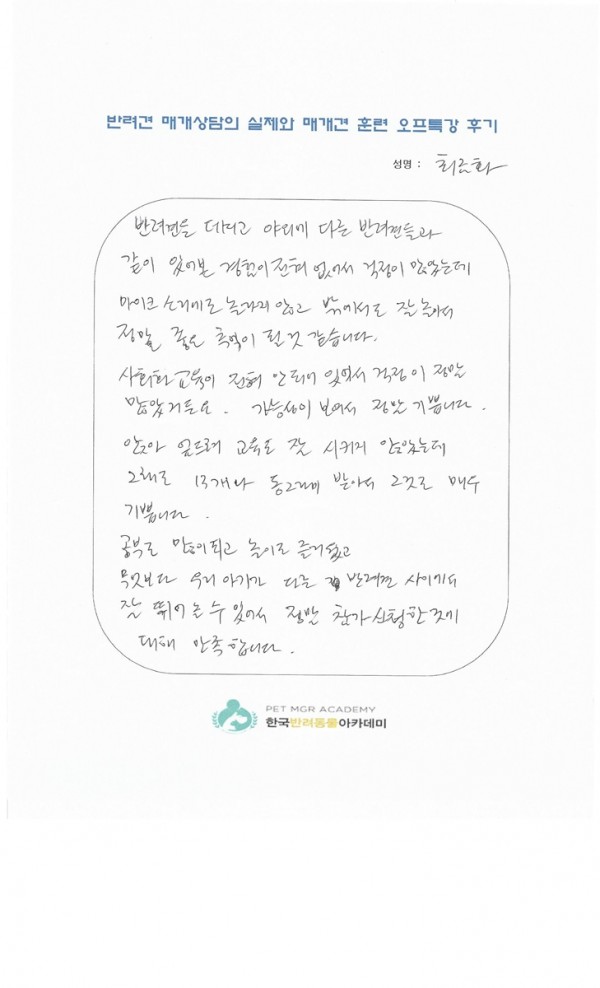 반려견 매개상담의 실제와 매개견 훈련 오프특강 후기
성명 : 최근화
반려견을 데리고 야외에 다른 반려견들과
같이 있어본 경험이 전혀 없어서 걱정이 많았는데
마이크 소리에도 놀라지 않고 밖에서도 잘 놀아서
정말 좋은 추억이 될 것 같습니다.
사회화 교육이 전혀 안되어 있어서 걱정이 정말
많았거든요. 가능성이 보여서 정말 기쁩니다.
앉아 엎드려 교육도 잘 시키지 않았는데
그래도 13개나 동그라미 받아서 그것도 매우
기쁩니다.
공부도 많이되고 놀이도 즐거웠고
무엇보다 우리 아가가 다른 반려견 사이에서
잘 뛰어 노는 수 있어서 정말 참가신청한 것에
대해 만족합니다.
PET MGR ACADEMY
한국반려동물아카데미